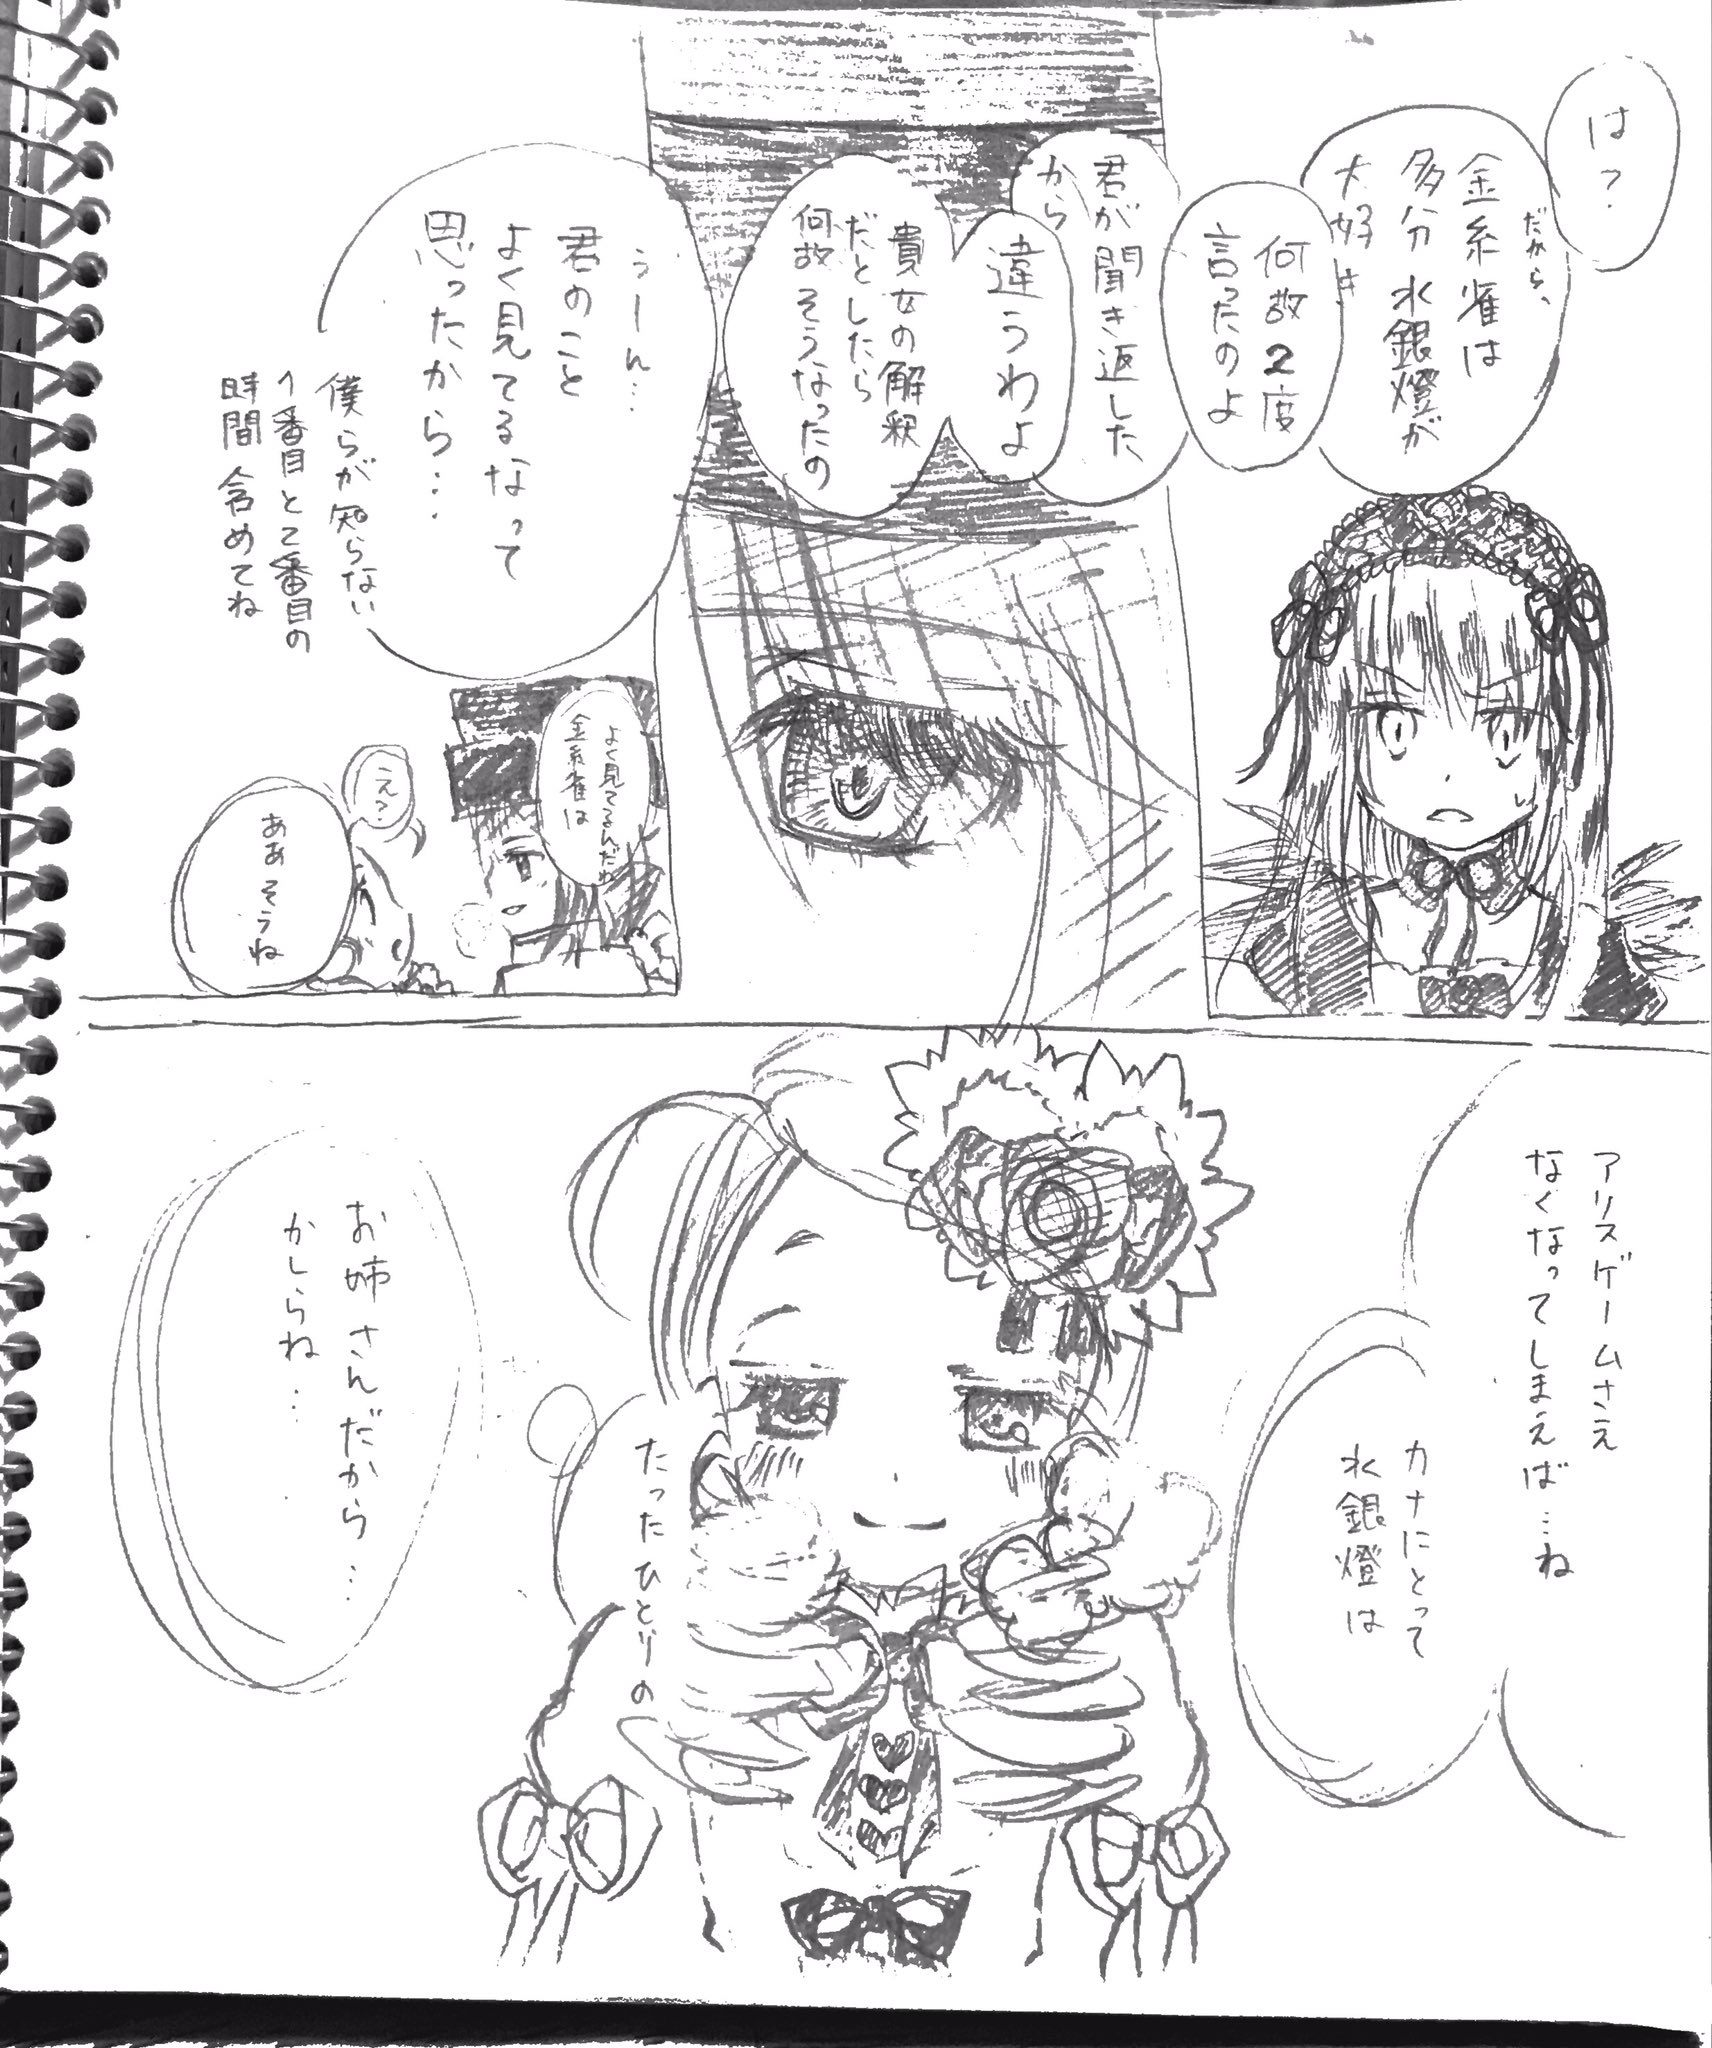 は?
だから、
金糸雀は
多分水銀燈が
大好き
何故2度
言ったのよ
君が聞き返した
から
違うわよ
貴女の解釈
だとしたら
何故そうなったの
うーん…
君のこと
よく見てるなって
思ったから…
僕らが知らない
1番目と2番目の
時間含めてね
よく見てるんだね
金糸雀は
え?
ああそうね
アリスゲームさえ
なくなってしまえば…ね
カナにとって
水銀燈は
たったひとりの
お姉さんだから…
かしらね…